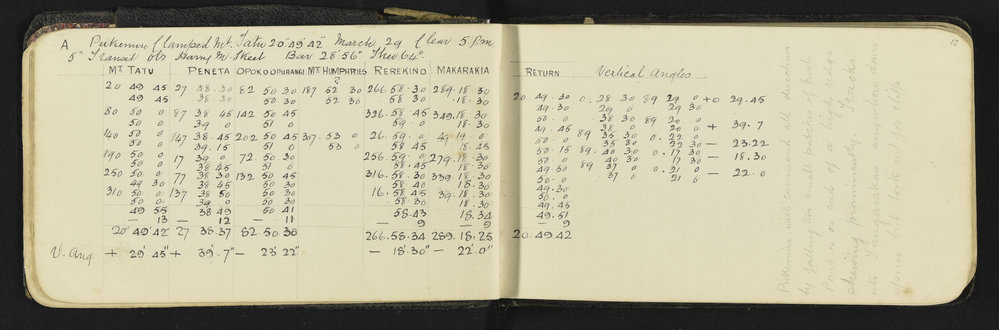 A Pukemiro Clamped Mt. Tatu 20° 49' 42" March 29 Clear 5 p.m
5" Transit Obs Harry M. Skeet Bar 28'.56" Ther 64°
MT TATU PENETA OPOKO OPURANGI MT HUMPHRIES REREKINO MAKARAKIA
20 49 45 27 38.30 82 50 30 187 52 30 266.58.30 289.18.30
49 45 38.30 50 30 52 30 58 30 .18.30
80 50 0 87 38 45 142 50 45 326.58 45 349.18.30
50 0 39 0 51 0 59 0 18.30
140 50 0 147 38 45 202 50 45 307.53 0 26.59.0 49.19.0
50 0 39.15 51 0 53 0 58 45 18.45
190 50 0 17 39 0 72 50 30 256.59.0 279.18.30
50 0 38 45 51 0 58.45 18.30
250 50 0 77 38 30 132 50 45 316.58.30 339.18.30
49 30 38 45 50 30 58 40 18.30
310 50 0 137 38 50 50 30 16.58 45 39.18.30
50 0 39 0 50 30 58.30 18.30
49 55 38 49 50 41 58.43 18.34
13 — 12 — 11 — 9 — 9
20° 49' 42" 27 38.37 82 50 30 266.58.34 289.18.25
V. Ang. + 29' 45" + 39'.7" — 23' 22" — 18'.30" — 22'.0"
12
RETURN Vertical angles
20.49.30 0.28 30 89 29 0 + 0 29.45
49.30 29 0 29 30
50.0 38 30 89 20 0
49.45 38 0 20 0 + 39.7
50.0 89 35 30 0.22 0
50.0 35 30 22 30 — 23.22
50.15 89.40 30 0.17 30
50.0 40 30 17 30 — 18.30
49.50 89 37 0 0.21 0
50.0 37 0 21 0 — 22.0
49.30
50.0
49.45
49.51
— 9
20 49 42
Pukemiro will command all directions
by falling two small patches of bush
Point is on end of a long ridge